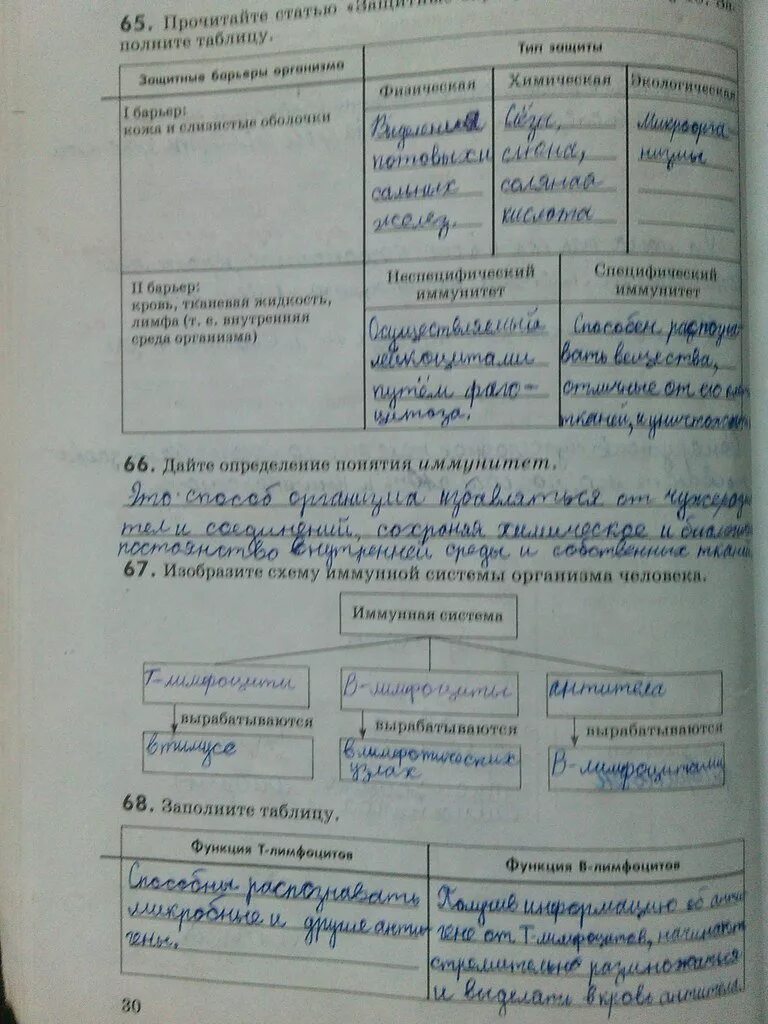 65. Прочитайте статью «Защитные
полните таблицу.
Защитные барьеры организма
Тип защиты
Физическая
Химическая
Экологическая
I барьер:
кожа и слизистые оболочки
Выделения
потовых и
сальных
желез.
Слёзы,
слюна,
соляная
кислота
Микроорга-
низмы
II барьер:
кровь, тканевая жидкость,
лимфа (т. е. внутренняя
среда организма)
Неспецифический
иммунитет
Специфический
иммунитет
Осуществляемый
лейкоцитами
путём фаго-
цитоза.
Способен распозна-
вать вещества,
отличные от его
тканей, и уничтожать
66. Дайте определение понятия иммунитет.
Это способ организма избавляться от чужерод
тел и соединений, сохраняя химическое и биологич
постоянство внутренней среды и собственных ткан
67. Изобразите схему иммунной системы организма человека.
Иммунная система
Т-лимфоциты
В-лимфоциты
антитела
вырабатываются
вырабатываются
вырабатываются
в тимусе
в лимфотических
узлах
В-лимфоцитами
68. Заполните таблицу.
Функция Т-лимфоцитов
Функция В-лимфоцитов
Способны распознавать
микробные и другие анти
гены.
Получив информацию об анти
гене от Т-лимфоцитов, начинают
стремительно размножаться
и выделать в кровь антитела.
30